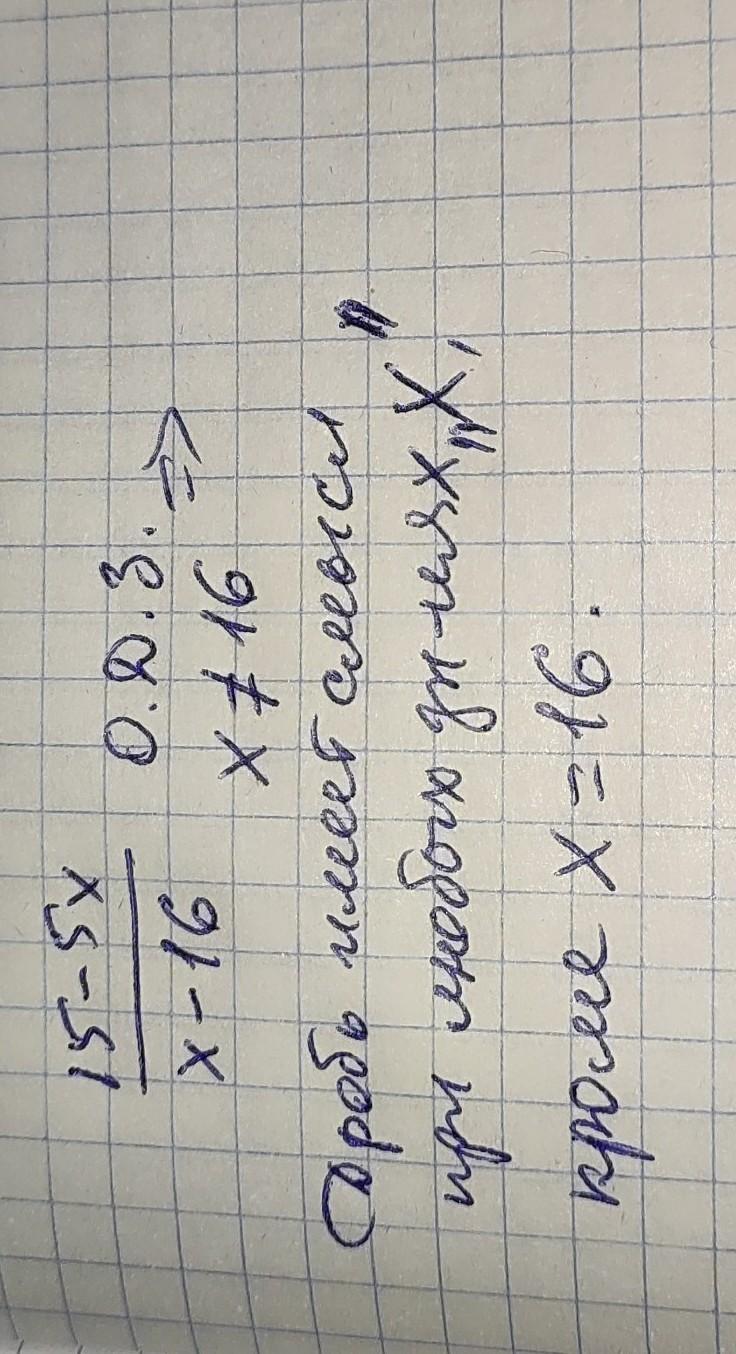 15-5x
x-16
О.Д.З.
x≠16 =>
Дробь имеет смысл
при любых зн-иях „x",
кроме x=16.